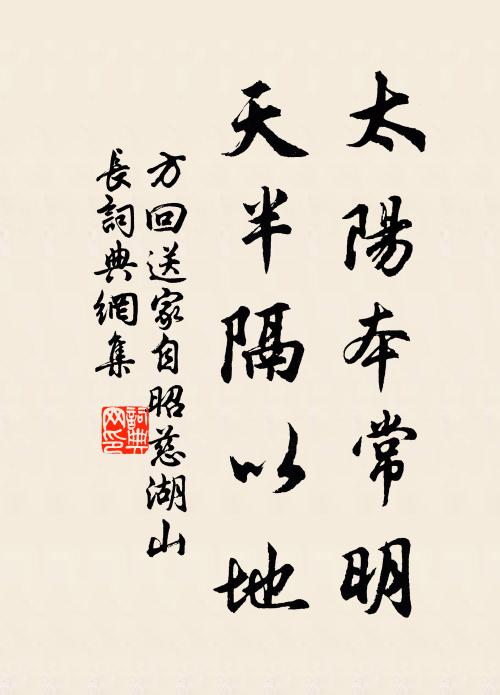 太陽本常明
天半隔以地
方回送家自昭慈湖山
長詞典網集
詞典
网印